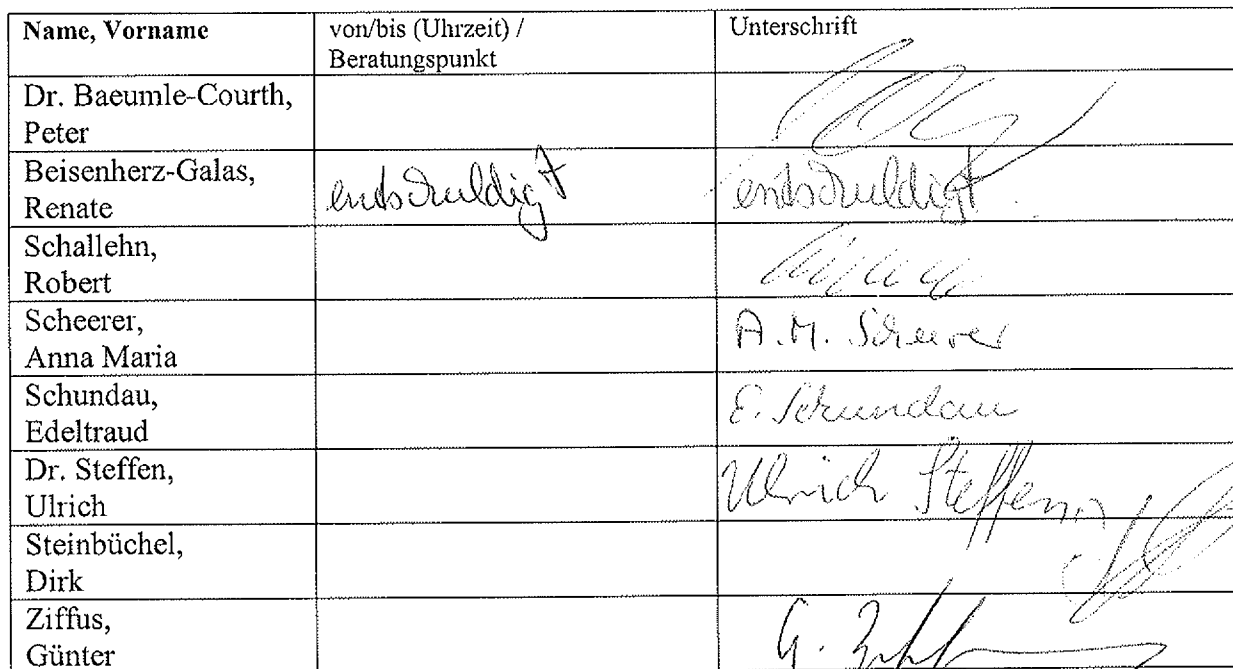 Name, Vorname
von/bis (Uhrzeit) /
Beratungspunkt
Unterschrift
Dr. Baeumle-Courth,
Peter
Beisenherz-Galas,
Renate
entschuldigt
entschuldigt
Schallehn,
Robert
Scheerer,
Anna Maria
A. M. Scheerer
Schundau,
Edeltraud
E. Schundau
Dr. Steffen,
Ulrich
Ulrich Steffen
Steinbüchel,
Dirk
Ziffus,
Günter
G.